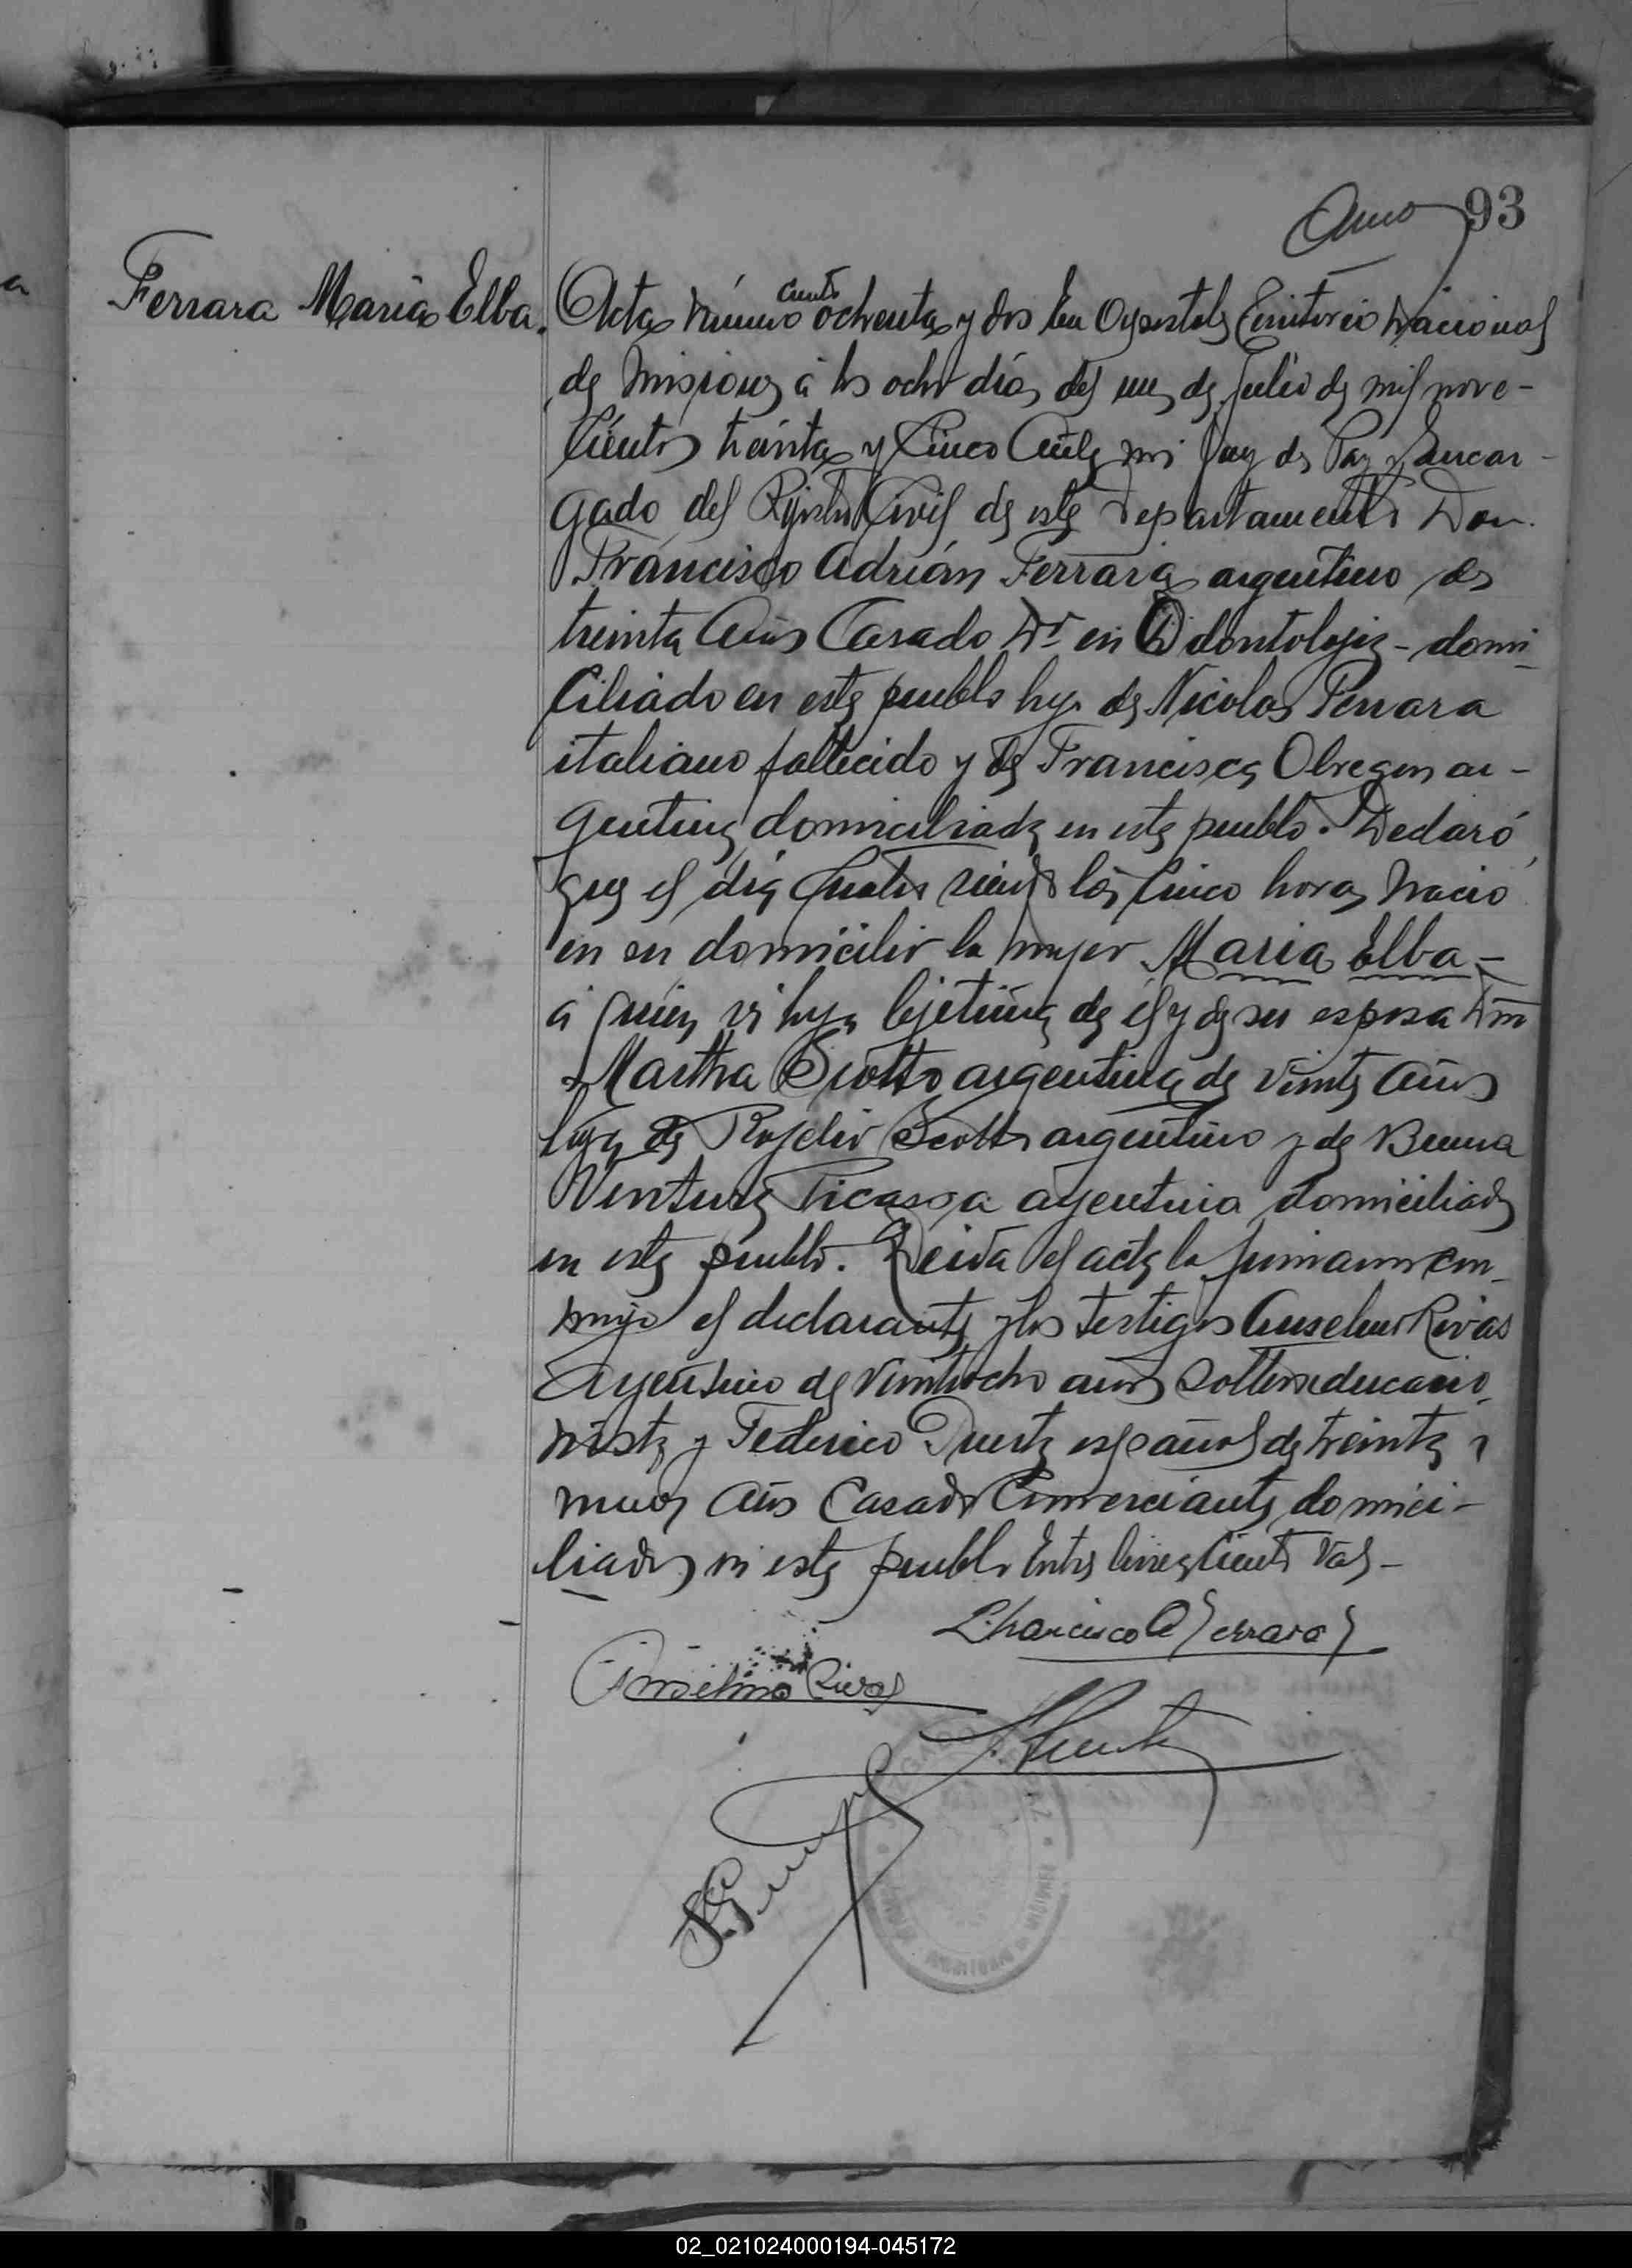 93
Ferrara Maria Elba.
Acta número ciento ochenta y dos En Apostoles Territorio Nacional
de Misiones á los ocho días del mes de Julio de mil nove-
cientos treinta y Cinco Ante mi Juez de Paz y Encar-
gado del Rejistro Civil de este Departamento Don
Francisco Adrián Ferrara argentino de
treinta Años Casado Dr en Odontolojia - domi-
ciliado en este pueblo hijo de Nicolas Ferrara
italiano fallecido y de Francisca Obregon ar-
gentina domiciliada en este pueblo. Declaró
que el día Cuatro siendo las Cinco horas Nació
en su domicilio la mujer Maria Elba -
á quien hija lejitima de él y de su esposa Dña
Martha Scotto argentina de veinte Años
hija de Rojelio Scotto argentino y de Buena
Ventura Picassa argentina domiciliada
en este pueblo. Leida el acta la firmaron con-
migo el declarante y los testigos Anselmo Rivas
Argentino de veintiocho años Soltero educacio-
nista y Federico Puerta español de treinta y
nueve Años Casado Comerciante domici-
liados en este pueblo Entre lineas Ciento Vale -
Francisco A Ferrara
Anselmo Rivas
F. Puerta
02_021024000194-045172